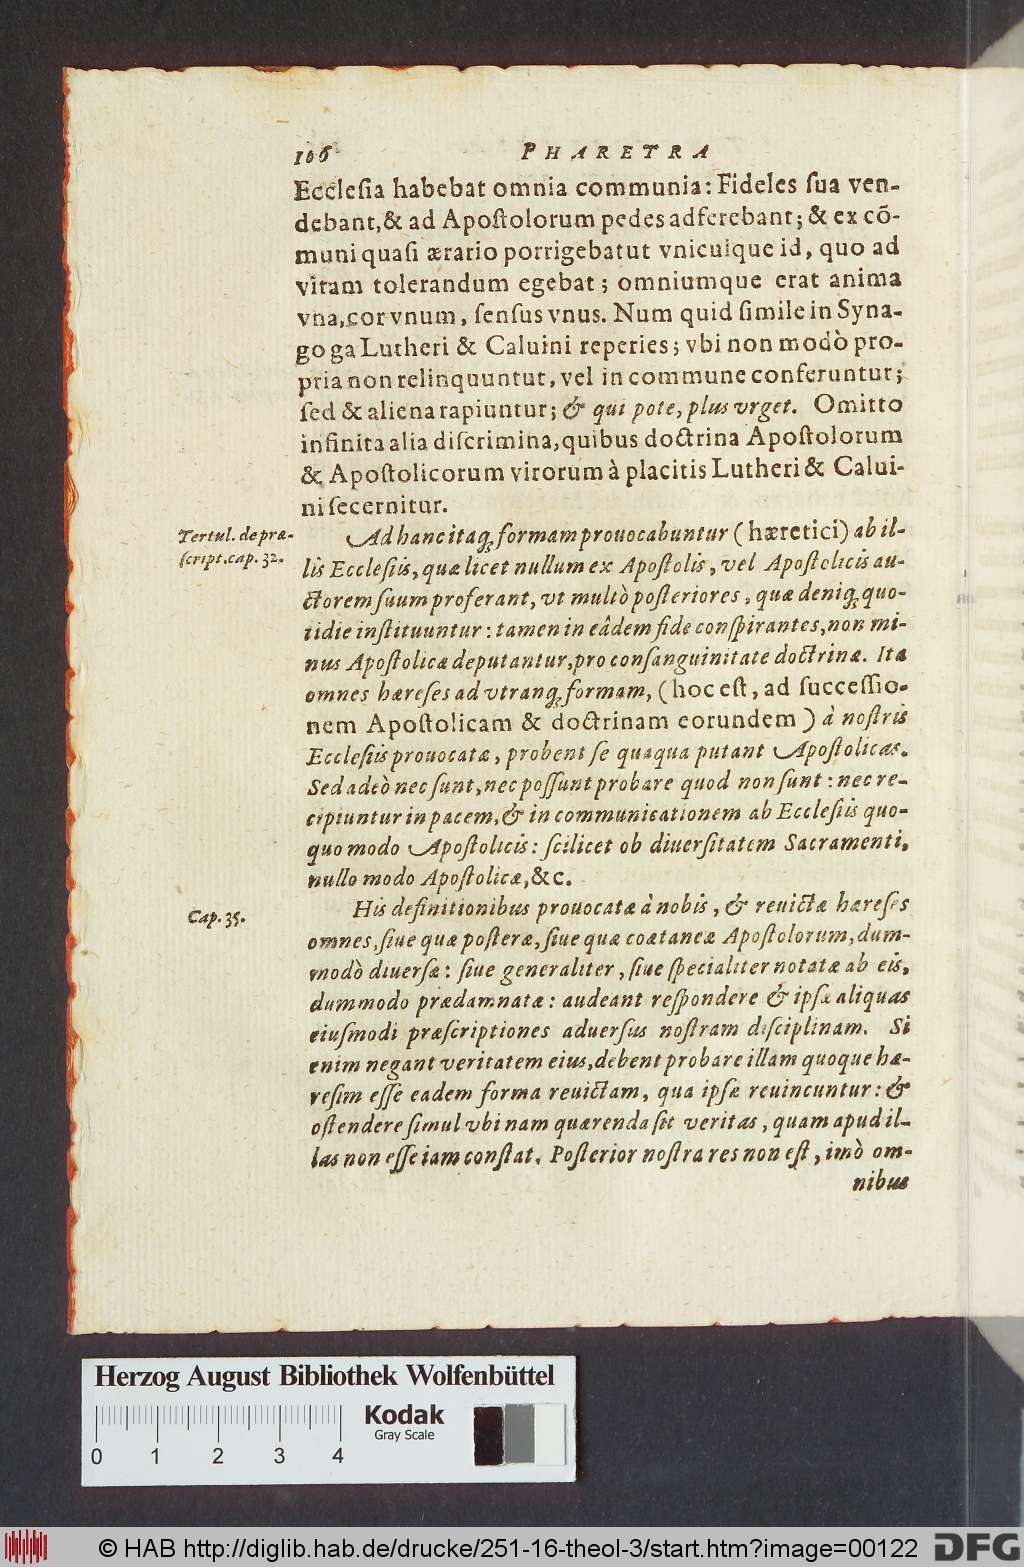 106 PHARETRA
Eccleſia habebat omnia communia: Fideles ſua ven-
debant, & ad Apoſtolorum pedes adferebant; & ex cõ-
muni quaſi ærario porrigebatut vnicuique id, quo ad
vitam tolerandum egebat; omniumque erat anima
vna, cor vnum, ſenſus vnus. Num quid ſimile in Syna-
goga Lutheri & Caluini reperies; vbi non modò pro-
pria non relinquuntut, vel in commune conferuntur;
ſed & aliena rapiuntur; & qui pote, plus vrget. Omitto
infinita alia diſcrimina, quibus doctrina Apoſtolorum
& Apoſtolicorum virorum à placitis Lutheri & Calui-
ni ſecernitur.
Tertul. de præ-
ſcript. cap. 32.
Ad hanc itaq; formam prouocabuntur (hæretici) ab il-
lis Eccleſiis, quæ licet nullum ex Apoſtolis, vel Apoſtolicis au-
ctorem ſuum proferant, vt multò poſteriores, quæ deniq; quo-
tidie inſtituuntur: tamen in eâdem fide conſpirantes, non mi-
nus Apoſtolicæ deputantur, pro conſanguinitate doctrinæ. Ita
omnes hæreſes ad vtranq; formam, (hoc eſt, ad ſucceſſio-
nem Apoſtolicam & doctrinam eorundem) à noſtris
Eccleſiis prouocatæ, probent ſe quaqua putant Apoſtolicas.
Sed adeò nec ſunt, nec poſſunt probare quod non ſunt: nec re-
cipiuntur in pacem, & in communicationem ab Eccleſiis quo-
quo modo Apoſtolicis: ſcilicet ob diuerſitatem Sacramenti,
nullo modo Apoſtolicæ, &c.
Cap. 35.
His definitionibus prouocatæ à nobis, & reuictæ hæreſes
omnes, ſiue quæ poſteræ, ſiue quæ coætaneæ Apoſtolorum, dum-
modò diuerſæ: ſiue generaliter, ſiue ſpecialiter notatæ ab eis,
dummodo prædamnatæ: audeant reſpondere & ipſæ aliquas
eiuſmodi præſcriptiones aduerſus noſtram diſciplinam. Si
enim negant veritatem eius, debent probare illam quoque hæ-
reſim eſſe eadem forma reuictam, qua ipſæ reuincuntur: &
oſtendere ſimul vbi nam quærenda ſit veritas, quam apud il-
las non eſſe iam conſtat. Poſterior noſtra res non eſt, imò om-
nibus
Herzog August Bibliothek Wolfenbüttel
Kodak
Gray Scale
0 1 2 3 4
© HAB http://diglib.hab.de/drucke/251-16-theol-3/start.htm?image=00122
DFG